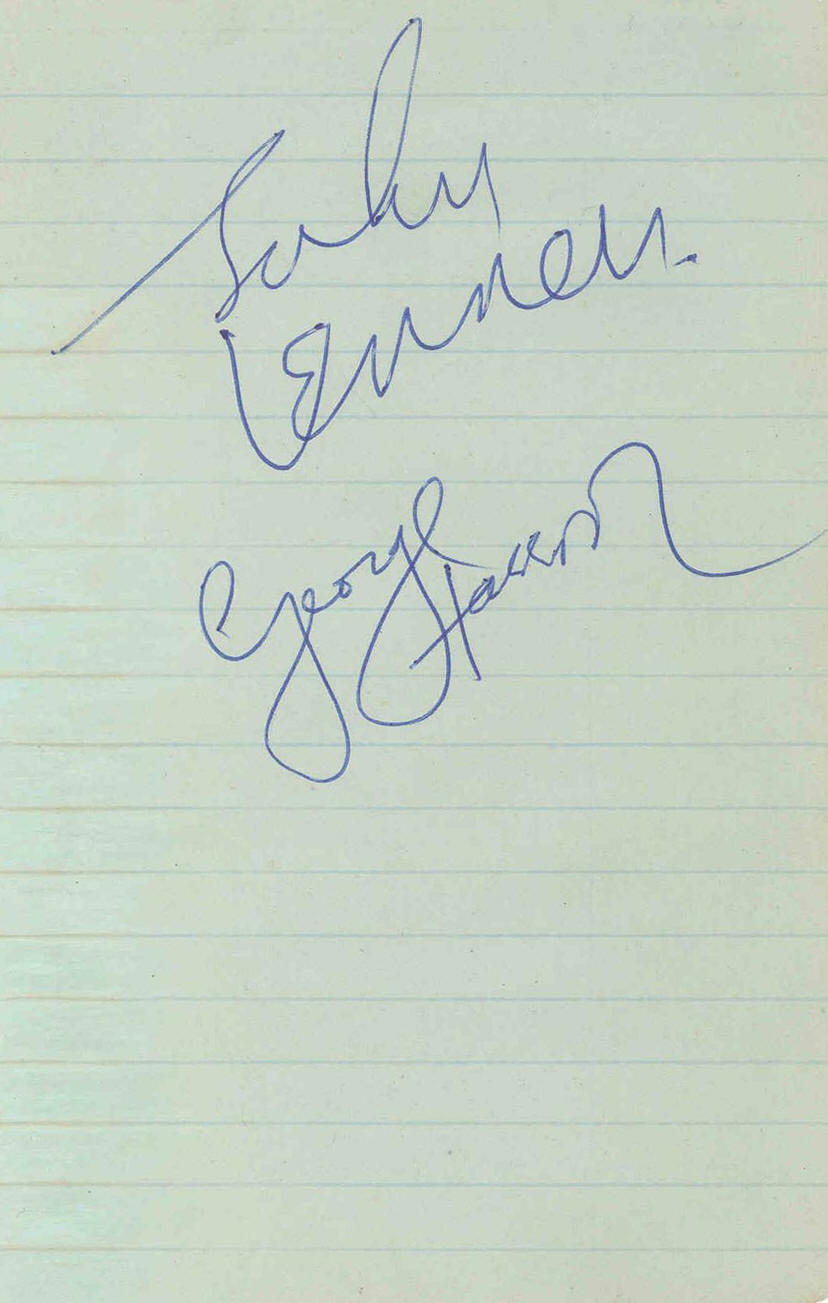 John
Lennon.
George Harrison